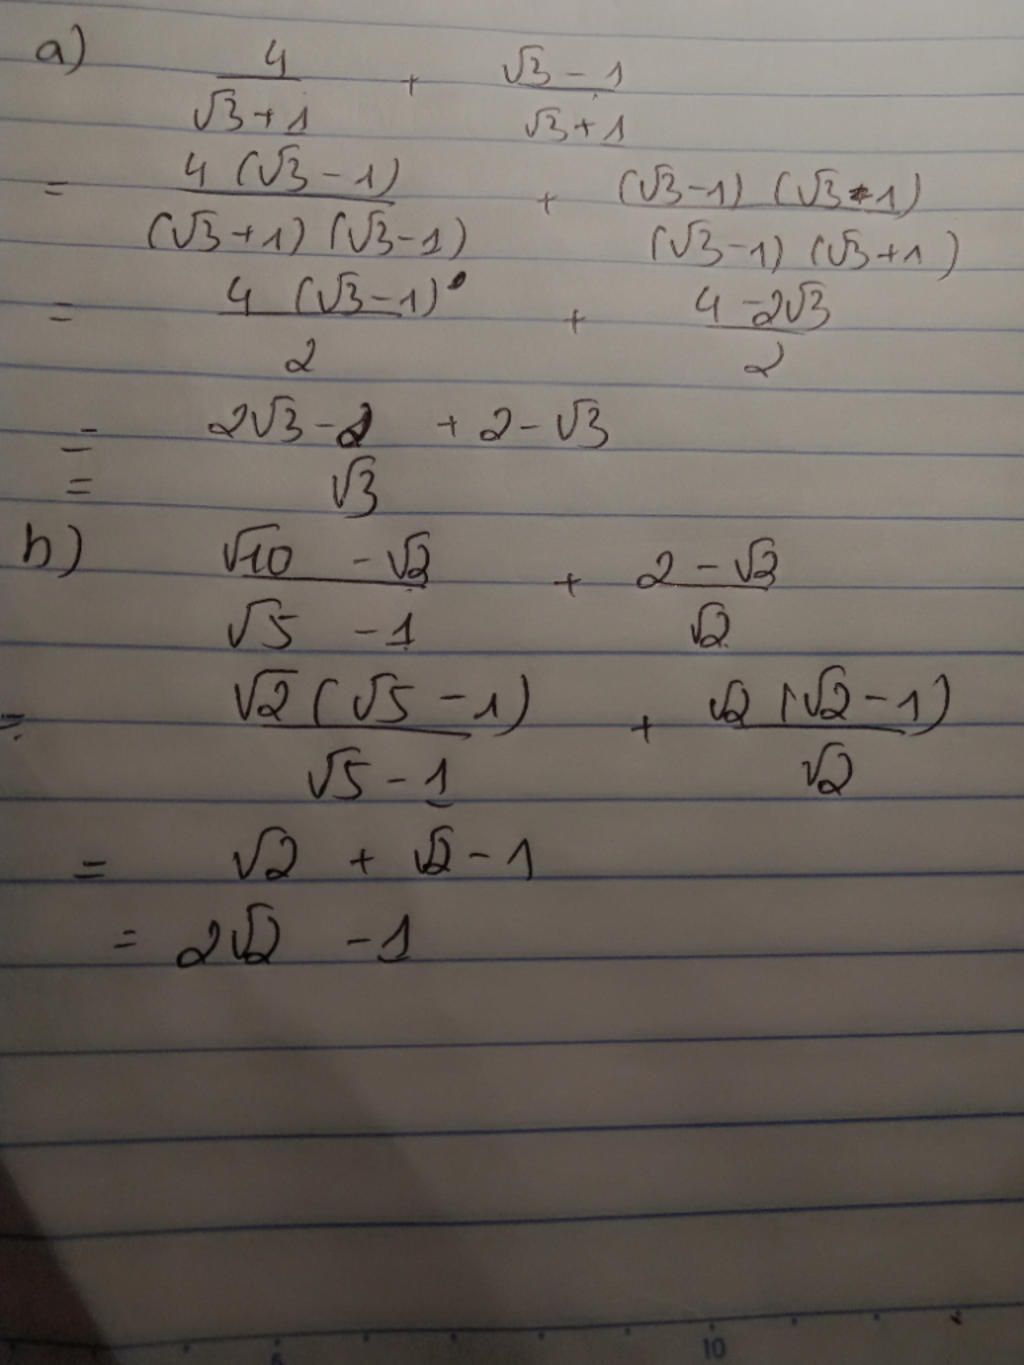 a) 4/(√3+1) + (√3-1)/(√3+1)
= 4(√3-1)/((√3+1)(√3-1)) + (√3-1)(√3-1)/((√3-1)(√3+1))
= 4(√3-1)/2 + (4-2√3)/2
= 2√3-2 + 2-√3
= √3
b) (√10-√2)/(√5-1) + (2-√2)/√2
= √2(√5-1)/(√5-1) + √2(√2-1)/√2
= √2 + √2-1
= 2√2 -1
10